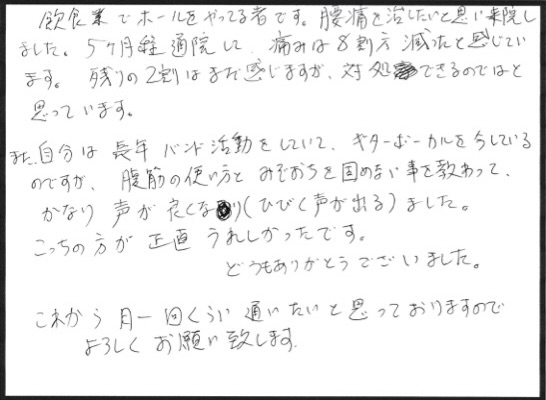 飲食業でホールをやってる者です。腰痛を治したいと思い来院し
ました。5ヶ月程通院して、痛みは8割方減ったと感じてい
ます。残りの2割はまだ感じますが、対処できるのではと
思っています。
また、自分は長年バンド活動をしていて、ギターボーカルを今している
のですが、腹筋の使い方とみぞおちを固めない事を教わって、
かなり声が良くなり(ひびく声が出る)ました。
こっちの方が正直うれしかったです。
どうもありがとうございました。
これから月一回くらい通いたいと思っておりますので
よろしくお願い致します。